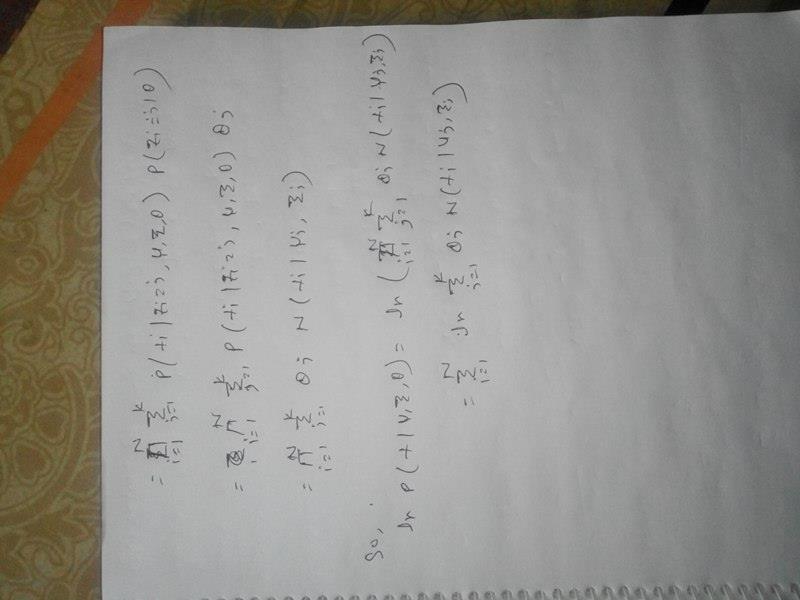 = ∏_{i=1}^{N} Σ_{j=1}^{K} P(xi | zi=j, μ, Σ, θ) P(zi=j | θ)
= ∏_{i=1}^{N} Σ_{j=1}^{K} P(xi | zi=j, μ, Σ, θ) θj
= ∏_{i=1}^{N} Σ_{j=1}^{K} θj N(xi | μj, Σj)
So,
ln P(x | μ, Σ, θ) = ln ( ∏_{i=1}^{N} Σ_{j=1}^{K} θj N(xi | μj, Σj)
= Σ_{i=1}^{N} ln Σ_{j=1}^{K} θj N(xi | μj, Σj)